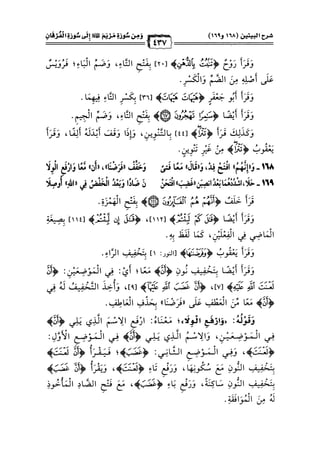 شرح البيتين (١٦٨ و١٦٩) وَمِنْ سُورَةِ مَرْيَمَ ﷺ إِلَى سُورَةِ الْفُرْقَانِ
٤٣٧
قَرَأَ رَوْحٌ ﴿تَنۢبُتُ بِٱلدُّهْنِ﴾ [٢٠] بِفَتْحِ التَّاءِ، وَضَمِّ الْبَاءِ؛ وَرُوَيْسٌ
عَلَى أَصْلِهِ مِنَ الضَّمِّ وَالْكَسْرِ.
وَقَرَأَ أَبُو جَعْفَرٍ ﴿هَيْهَاتِ هَيْهَاتِ﴾ [٣٦] بِكَسْرِ التَّاءِ فِيهِمَا.
وَقَرَأَ أَيْضًا ﴿سَٰمِرًا تَهْجُرُونَ﴾ بِفَتْحِ التَّاءِ، وَضَمِّ الْجِيمِ.
وَكَذَلِكَ قَرَأَ ﴿تَتْرًا﴾ [٤٤] بِالتَّنْوِينِ، وَإِذَا وَقَفَ أَبْدَلَهُ أَلِفًا، وَقَرَأَ
يَعْقُوبُ ﴿تَتْرَا﴾ مِنْ غَيْرِ تَنْوِينٍ.
قَرَأَ خَلَفٌ ﴿أَنَّهُمْ هُمُ ٱلْفَآئِزُونَ﴾ بِفَتْحِ الْهَمْزَةِ.
وَقَرَأَ أَيْضًا ﴿قَٰلَ كَمْ لَبِثْتُمْ﴾ [١١٢]، ﴿قَٰلَ إِن لَّبِثْتُمْ﴾ [١١٤] بِصِيغَةِ
الْمَاضِي فِي الْفِعْلَيْنِ، كَمَا لَفَظَ بِهِ.
وَقَرَأَ يَعْقُوبُ ﴿وَفَرَضْنَٰهَا﴾ [النور: ١] بِتَخْفِيفِ الرَّاءِ.
وَقَرَأَ أَيْضًا بِتَخْفِيفِ نُونِ ﴿أَنْ﴾ مَعًا؛ أَيْ: فِي الْمَوْضِعَيْنِ: ﴿أَنْ
لَعْنَتُ ٱللَّهِ عَلَيْهِ﴾ [٧]، ﴿أَنْ غَضَبُ ٱللَّهِ عَلَيْهَآ﴾ [٩]، وَأُخِذَ التَّخْفِيفُ لَهُ فِي
﴿أَنْ﴾ مَعًا مِنَ الْعَطْفِ عَلَى «فَرَضْنَا» بِحَذْفِ الْعَاطِفِ.
وَقَوْلُهُ: «وَارْفَعِ الْوِلَا»؛ مَعْنَاهُ: ارْفَعِ الِاسْمَ الَّذِي يَلِي ﴿أَنْ﴾
فِي الْمَوْضِعَيْنِ، وَالِاسْمُ الَّذِي يَلِي ﴿أَنْ﴾ فِي الْمَوْضِعِ الْأَوَّلِ:
﴿لَعْنَتُ﴾، وَفِي الْمَوْضِعِ الثَّانِي: ﴿غَضَبُ﴾؛ فَيَقْرَأُ ﴿أَنْ لَعْنَتُ﴾
بِتَخْفِيفِ النُّونِ مَعَ سُكُونِهَا، وَرَفْعِ تَاءِ ﴿لَعْنَتُ﴾، وَيَقْرَأُ ﴿أَنْ غَضَبُ﴾
بِتَخْفِيفِ النُّونِ سَاكِنَةً، وَرَفْعِ بَاءِ ﴿غَضَبُ﴾، مَعَ فَتْحِ الضَّادِ الْمَأْخُوذِ
لَهُ مِنَ الْمُوَافَقَةِ.